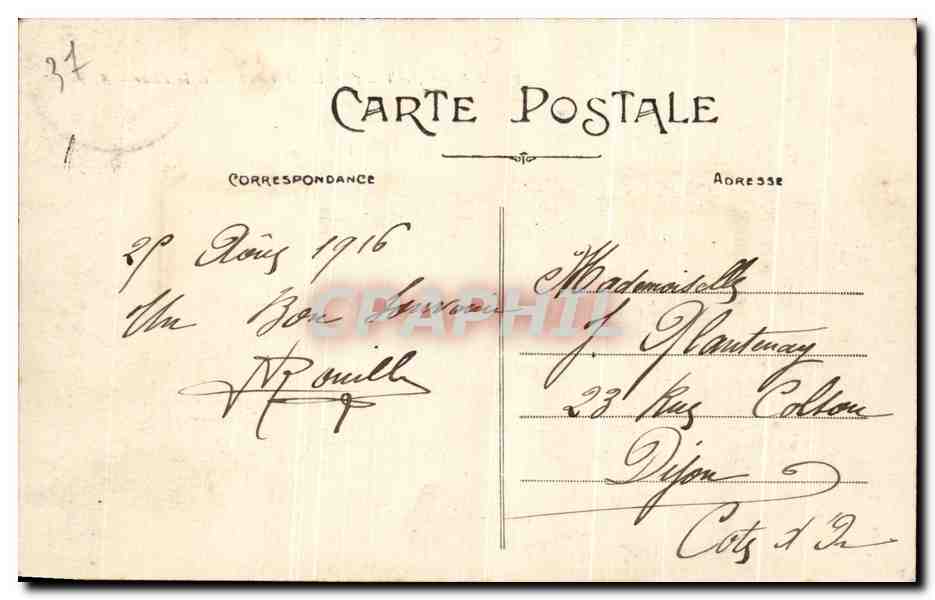 37
CARTE POSTALE
CORRESPONDANCE
ADRESSE
Août 1916
Un Bon Souvenir
Mademoiselle
J. Plantenay
23 Rue Colson
Dijon
Cote d'Or
CPAPHIL